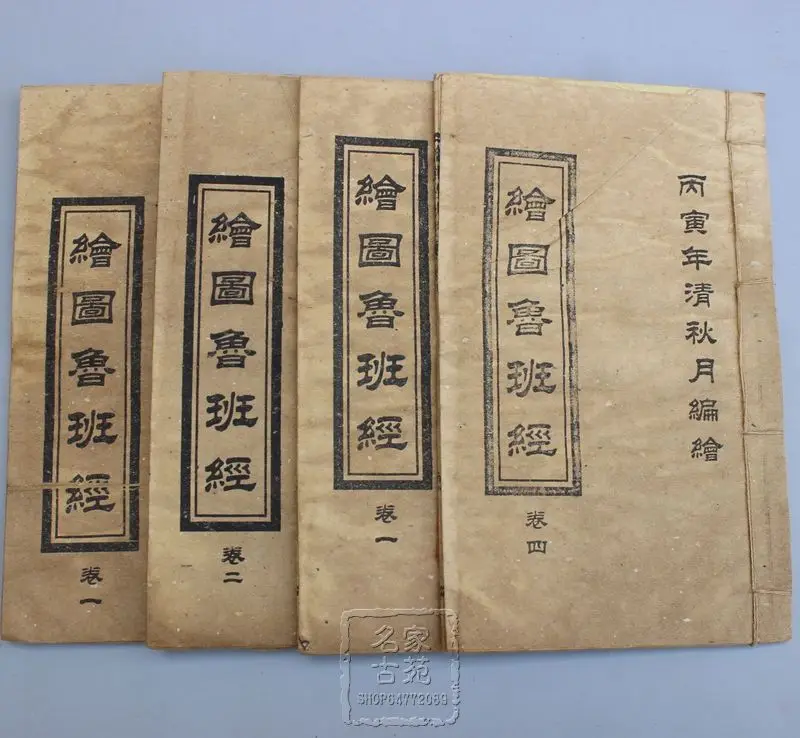 繪圖魯班經
卷一
繪圖魯班經
卷二
繪圖魯班經
卷一
丙寅年清秋月編繪
繪圖魯班經
卷四
名家
古苑
SHOP64772069